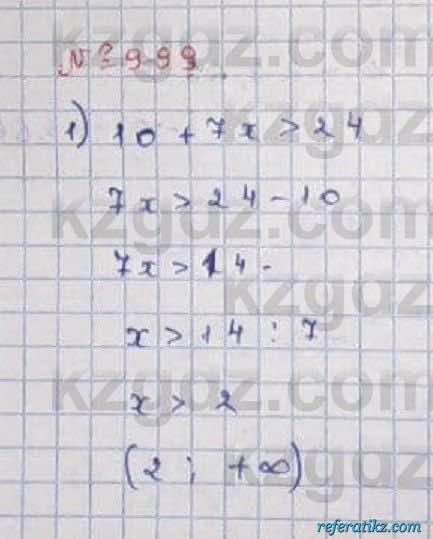 № 999
1) 10 + 7x > 24
7x > 24 - 10
7x > 14.
x > 14 : 7
x > 2
(2 ; +∞)
kzgdz.com
kzgdz.com
kzgdz.com
kzgdz.com
kzgdz.com
referatikz.com